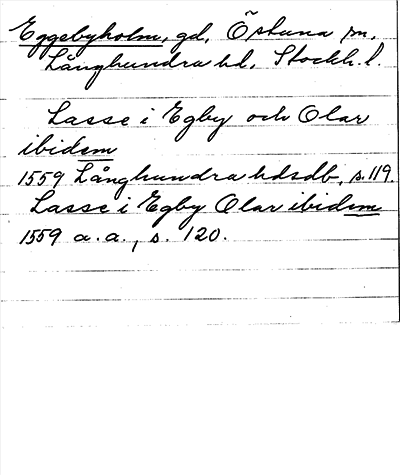 Eggebyholm, gd, Östuna sn,
Långhundra hd, Stockh. l.
Lasse i Egby och Olar
ibidem
1559 Långhundra hdsdb, s. 119.
Lasse i Egby Olar ibidem
1559 a. a., s. 120.